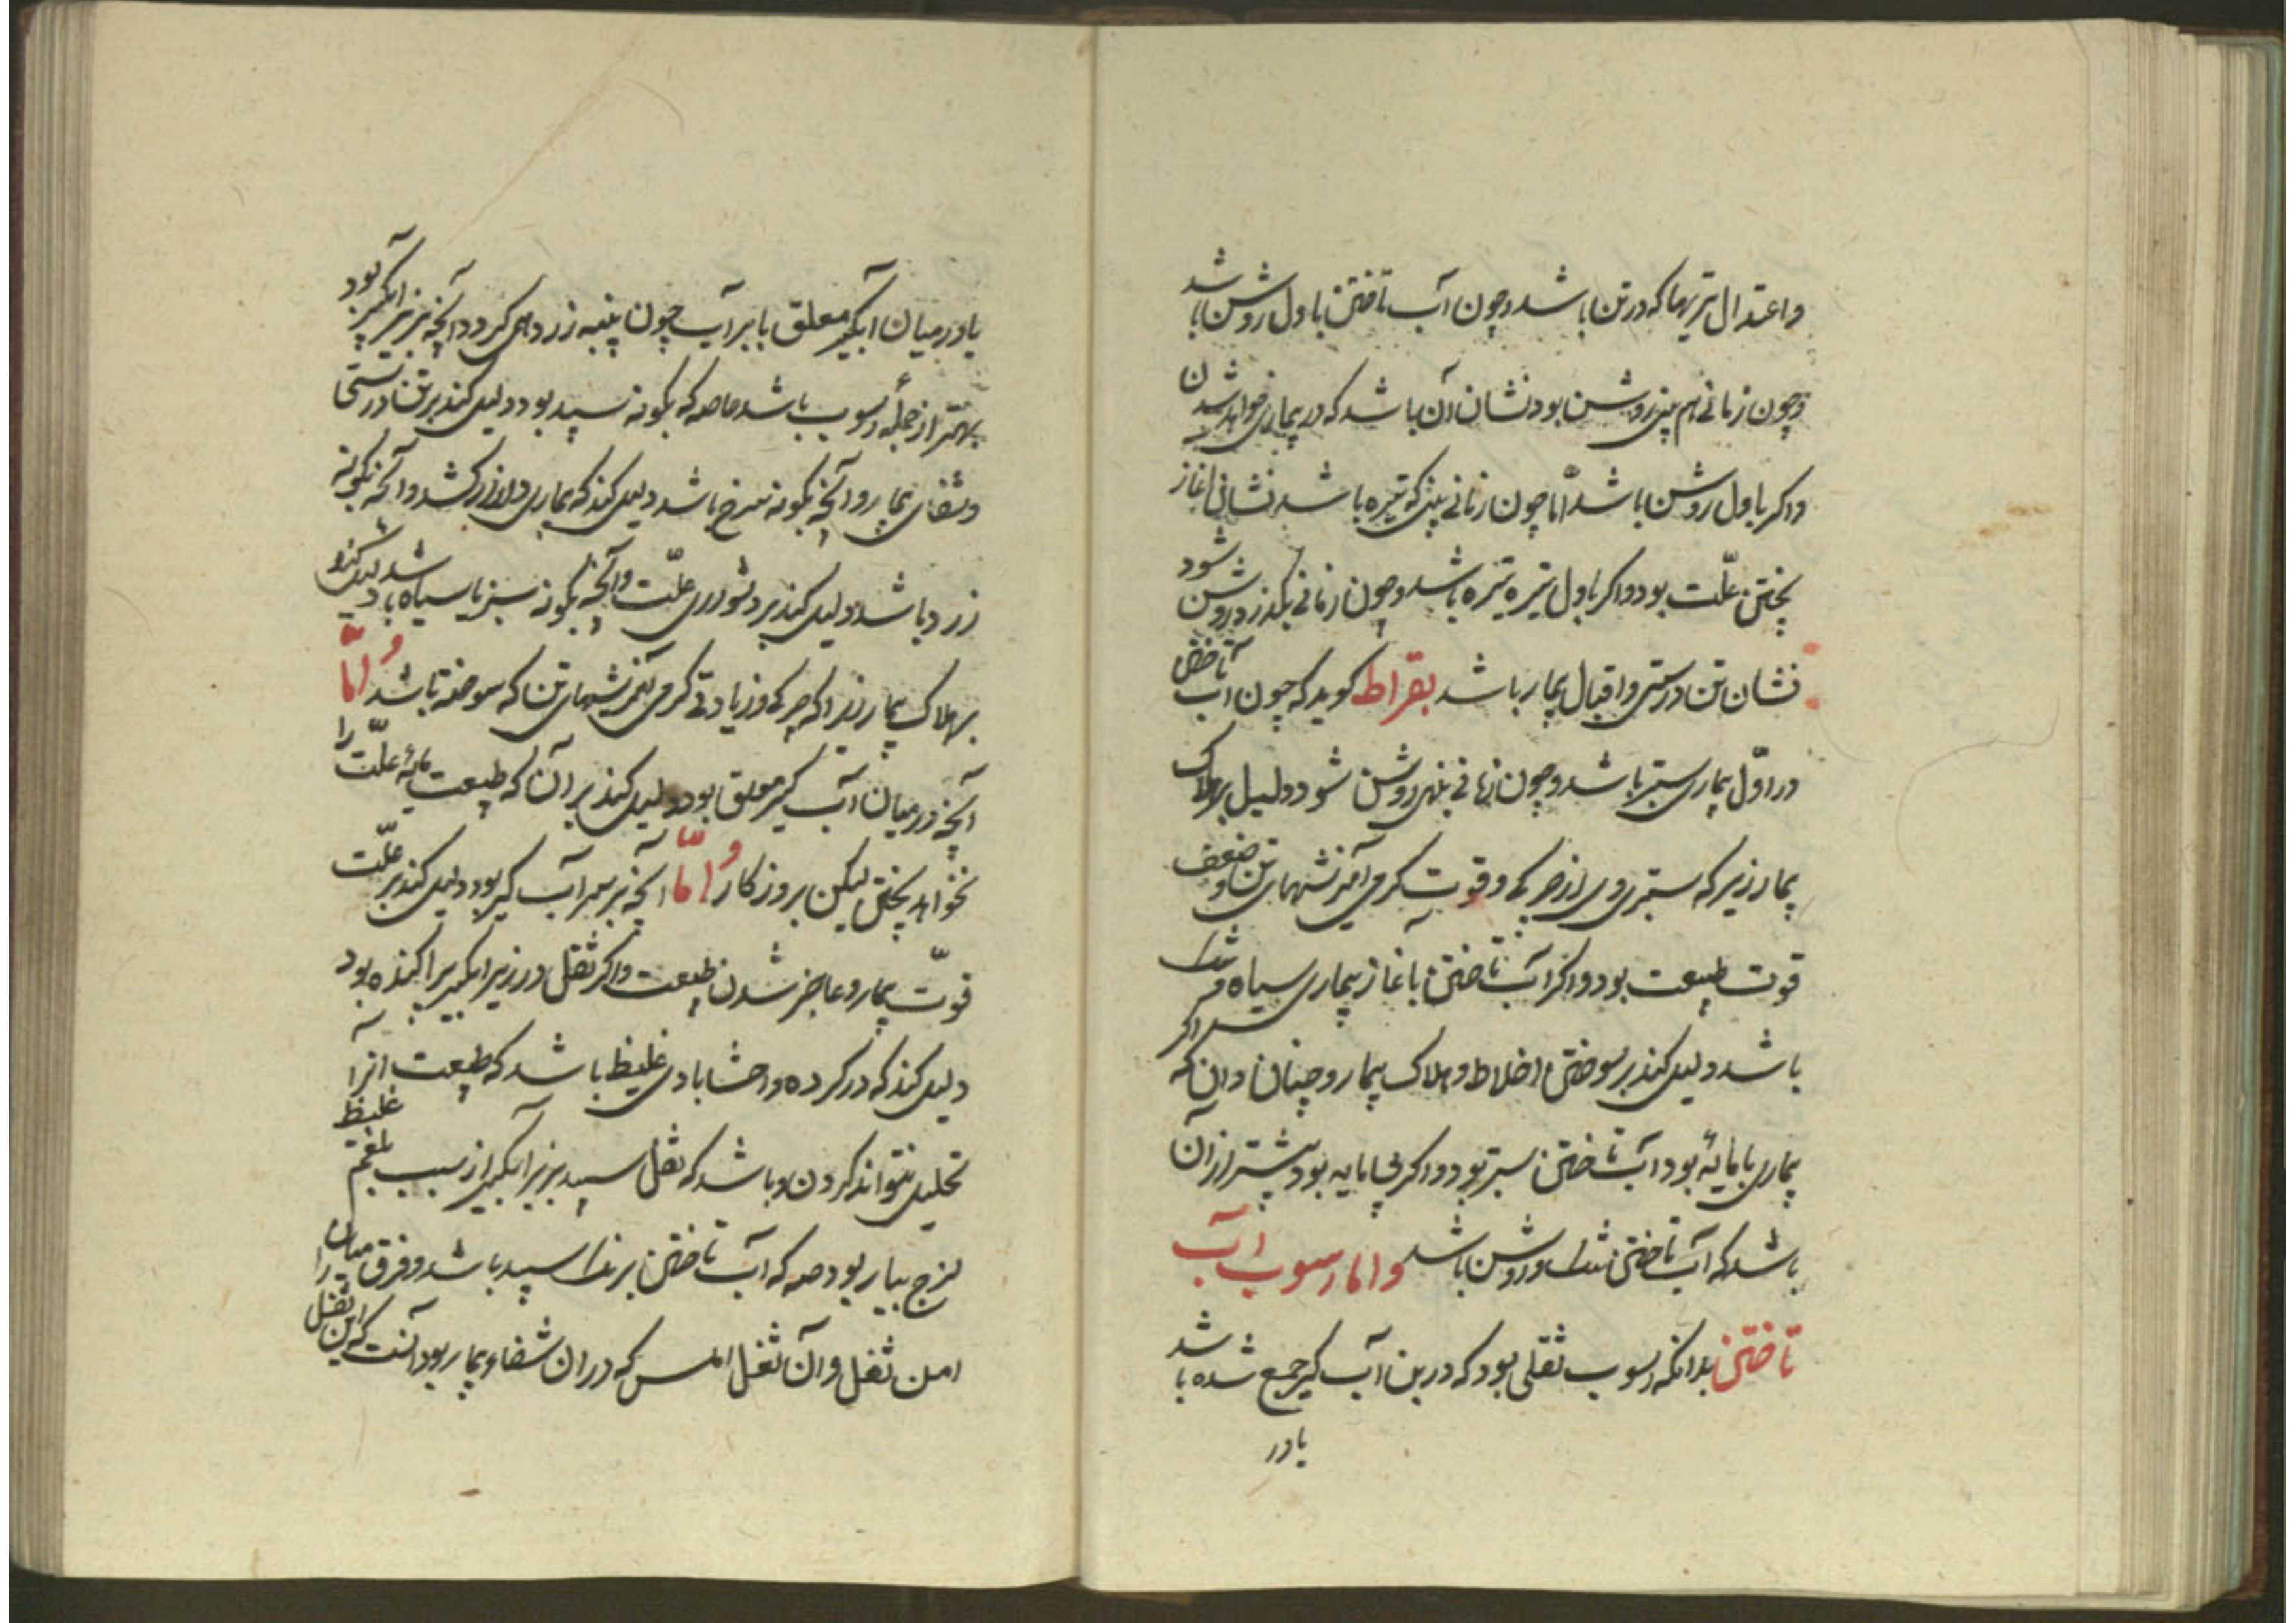 واعتدال تریها که در تن باشد و چون آب تاختن باول روشن باشد
و چون زمانی هم چنین روشن بود نشان آن باشد که در بیماری خواهد شدن
واکر باول روشن باشد اما چون زمانی بینی که تیره باشد نشانی اغاز
پختن علّت بود واکر باول تیره تیره باشد و چون زمانی بکذرد روشن شود
نشان تن درستی واقبال بیمار باشد بقراط کوید که چون آب تاختن
در اوّل بیماری ستبر باشد و چون زمانی بنهی روشن شود دلیل بر هلاک
بیمار زیر که ستبری وی از حرکه وقوت کرمی آمیزشهای تن و ضعف
قوت طبیعت بود واکر آب تاختن باغاز بیماری سیاه
باشد دلیل کند بر سوختن اخلاط و هلاک بیمار و چنان دان که اکر
بیماری با مایه بود آب تاختن ستبر بود واکر بی مایه بود بیشتر از آن
باشد که آب تاختن تنک و روشن باشد واما رسوب آب
تاختن بدانکه رسوب ثقلی بود که در بن آب کیر جمع شده باشد
یا در
یا در میان آبکیر معلق یا بر آب چون پنبه زرده ای کردد آنچه بزیر آبکیر بود
بهتر از جمله رسوب باشد خاصه که بکونه سپید بود دلیل کند بر تن درستی
وشفای بیمار و آنچه بکونه سرخ باشد دلیل کند که بیماری دراز کشد و آنچه بکونه
زرد باشد دلیل کند بر دشواری علّت و آنچه بکونه سبز یا سیاه باشد دلیل کند
بر هلاک بیمار زیرا که حرکه وزیادتی کرمی آمیزشهای تن که سوخته باشد و امّا
آنچه در میان آب کیر معلق بود دلیل کند بر آن که طبیعت مایهٔ علّت را
نخواهد پختن لیکن بروزکار و امّا آنچه بر سر آب کیر بود دلیل کند بر علّت
قوّت بیمار و عاجز شدن طبیعت واکر ثقل در زیر آبکیر پراکنده بود
دلیل کند که در کرده واحشا بادی غلیظ باشد که طبیعت آنرا
تحلیل نتواند کردن و باشد که ثقل سپید بزیر آبکیر از سبب بلغم غلیظ
لزج بیمار بود که آب تاختن سپید باشد وفرق میان
ثقل و آن ثقل املس که در آن شفا و بیمار بود آنست که این ثقل را